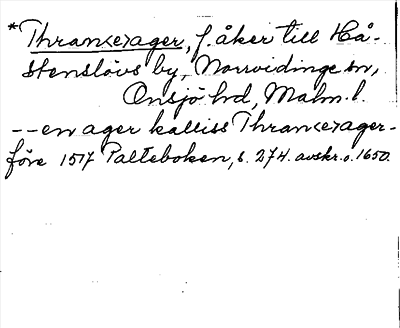 *Thran<e>ager, f. åker till Hå-
stenslövs by, Norrvidinge sn,
Onsjö hd, Malm. l.
-- en ager kalliss Thran<e>ager -
före 1517 Palteboken, s. 274. avskr. o. 1650.